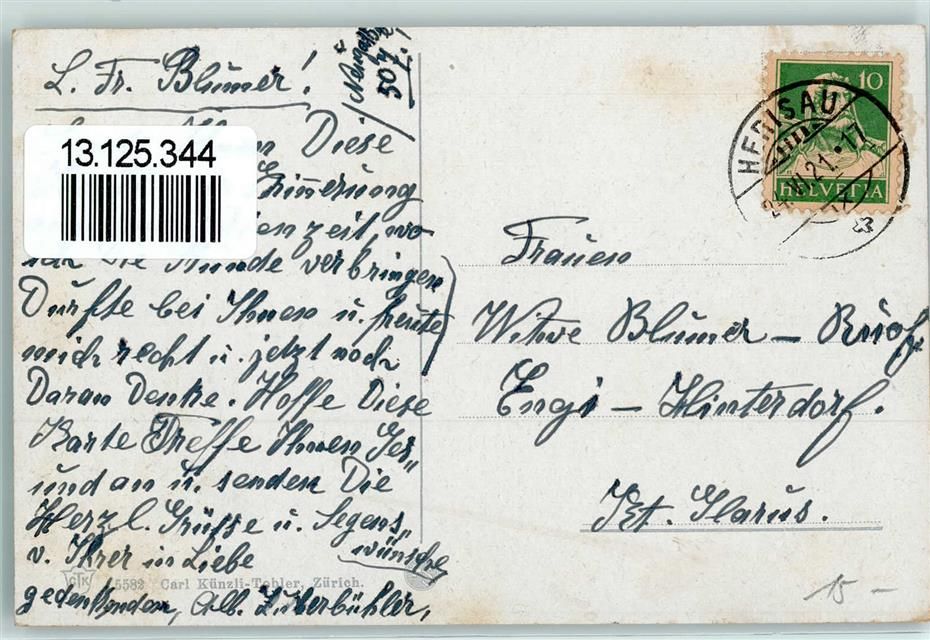 L. Fr. Blumer!
50
13.125.344
Diese
Erinnerung
zeit, wo
die Stunde verbringen
Durfte bei Ihnen u. freute
mich recht u. jetzt noch
Daran Denke. Hoffe Diese
Karte Treffe Ihnen Ges„
und an u. senden Die
Herzl. Grüsse u. Segens„
wünsche
v. Ihrer in Liebe
gedenkenden, Alb. Zuberbühler,
CTK 5582 Carl Künzli-Tobler, Zürich.
10
HELVETIA
HERISAU
24.VI.21.•17
Frauen
Witwe Blumer – Rüof
Engi – Hinterdorf.
Kt. Glarus.
15 –